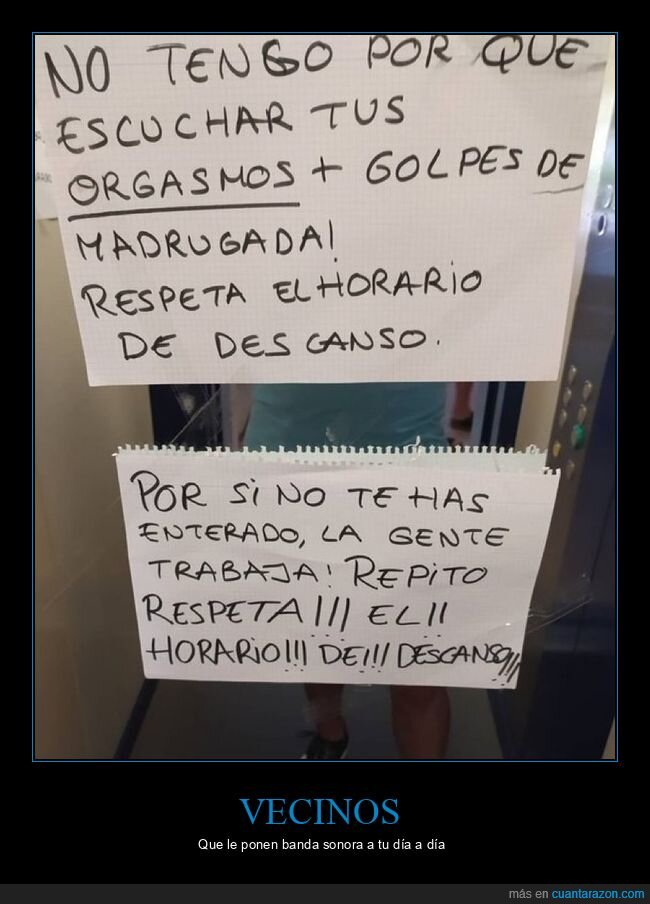 NO TENGO POR QUE
ESCUCHAR TUS
ORGASMOS + GOLPES DE
MADRUGADA!
RESPETA EL HORARIO
DE DESCANSO.
POR SI NO TE HAS
ENTERADO, LA GENTE
TRABAJA! REPITO
RESPETA!!! EL!!
HORARIO!!! DE!!! DESCANSO!!!
VECINOS
Que le ponen banda sonora a tu día a día
más en cuantarazon.com